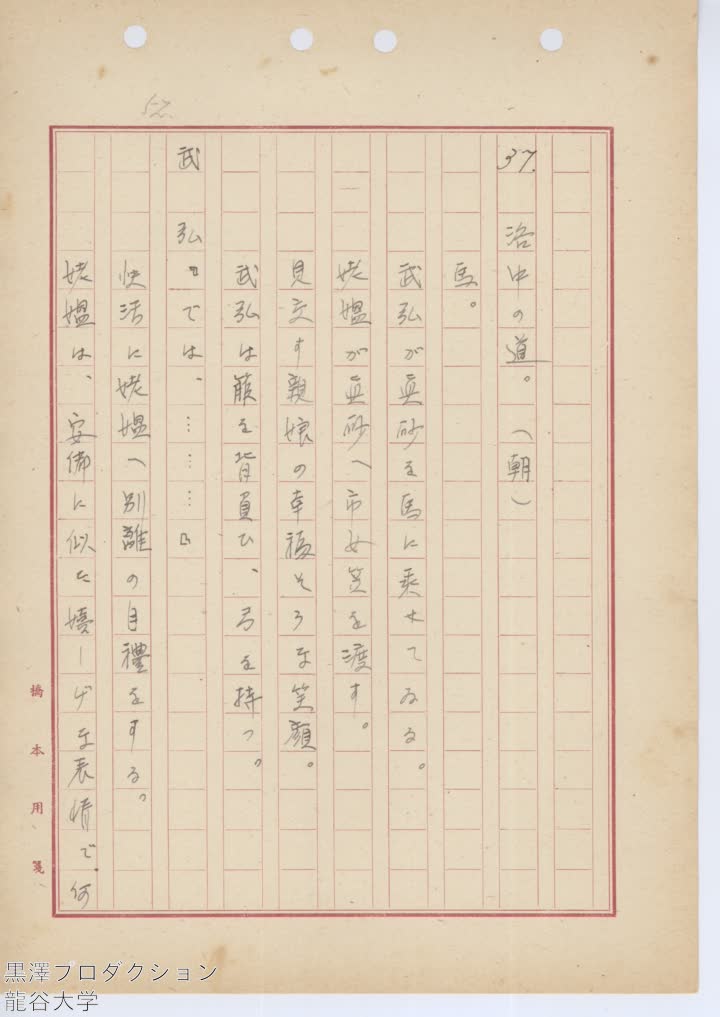 52.
37. 洛中の道。（朝）
馬。
武弘が眞砂を馬に乘せてゐる。
姥媼が眞砂へ市女笠を渡す。
見交す親娘の幸福そうな笑顔。
武弘は箙を背負ひ、弓を持つ。
武弘『では、………』
快活に姥媼へ別離の目禮をする。
姥媼は、安佛に似た嬉しげな表情で、何
橋本用箋
黒澤プロダクション
龍谷大学